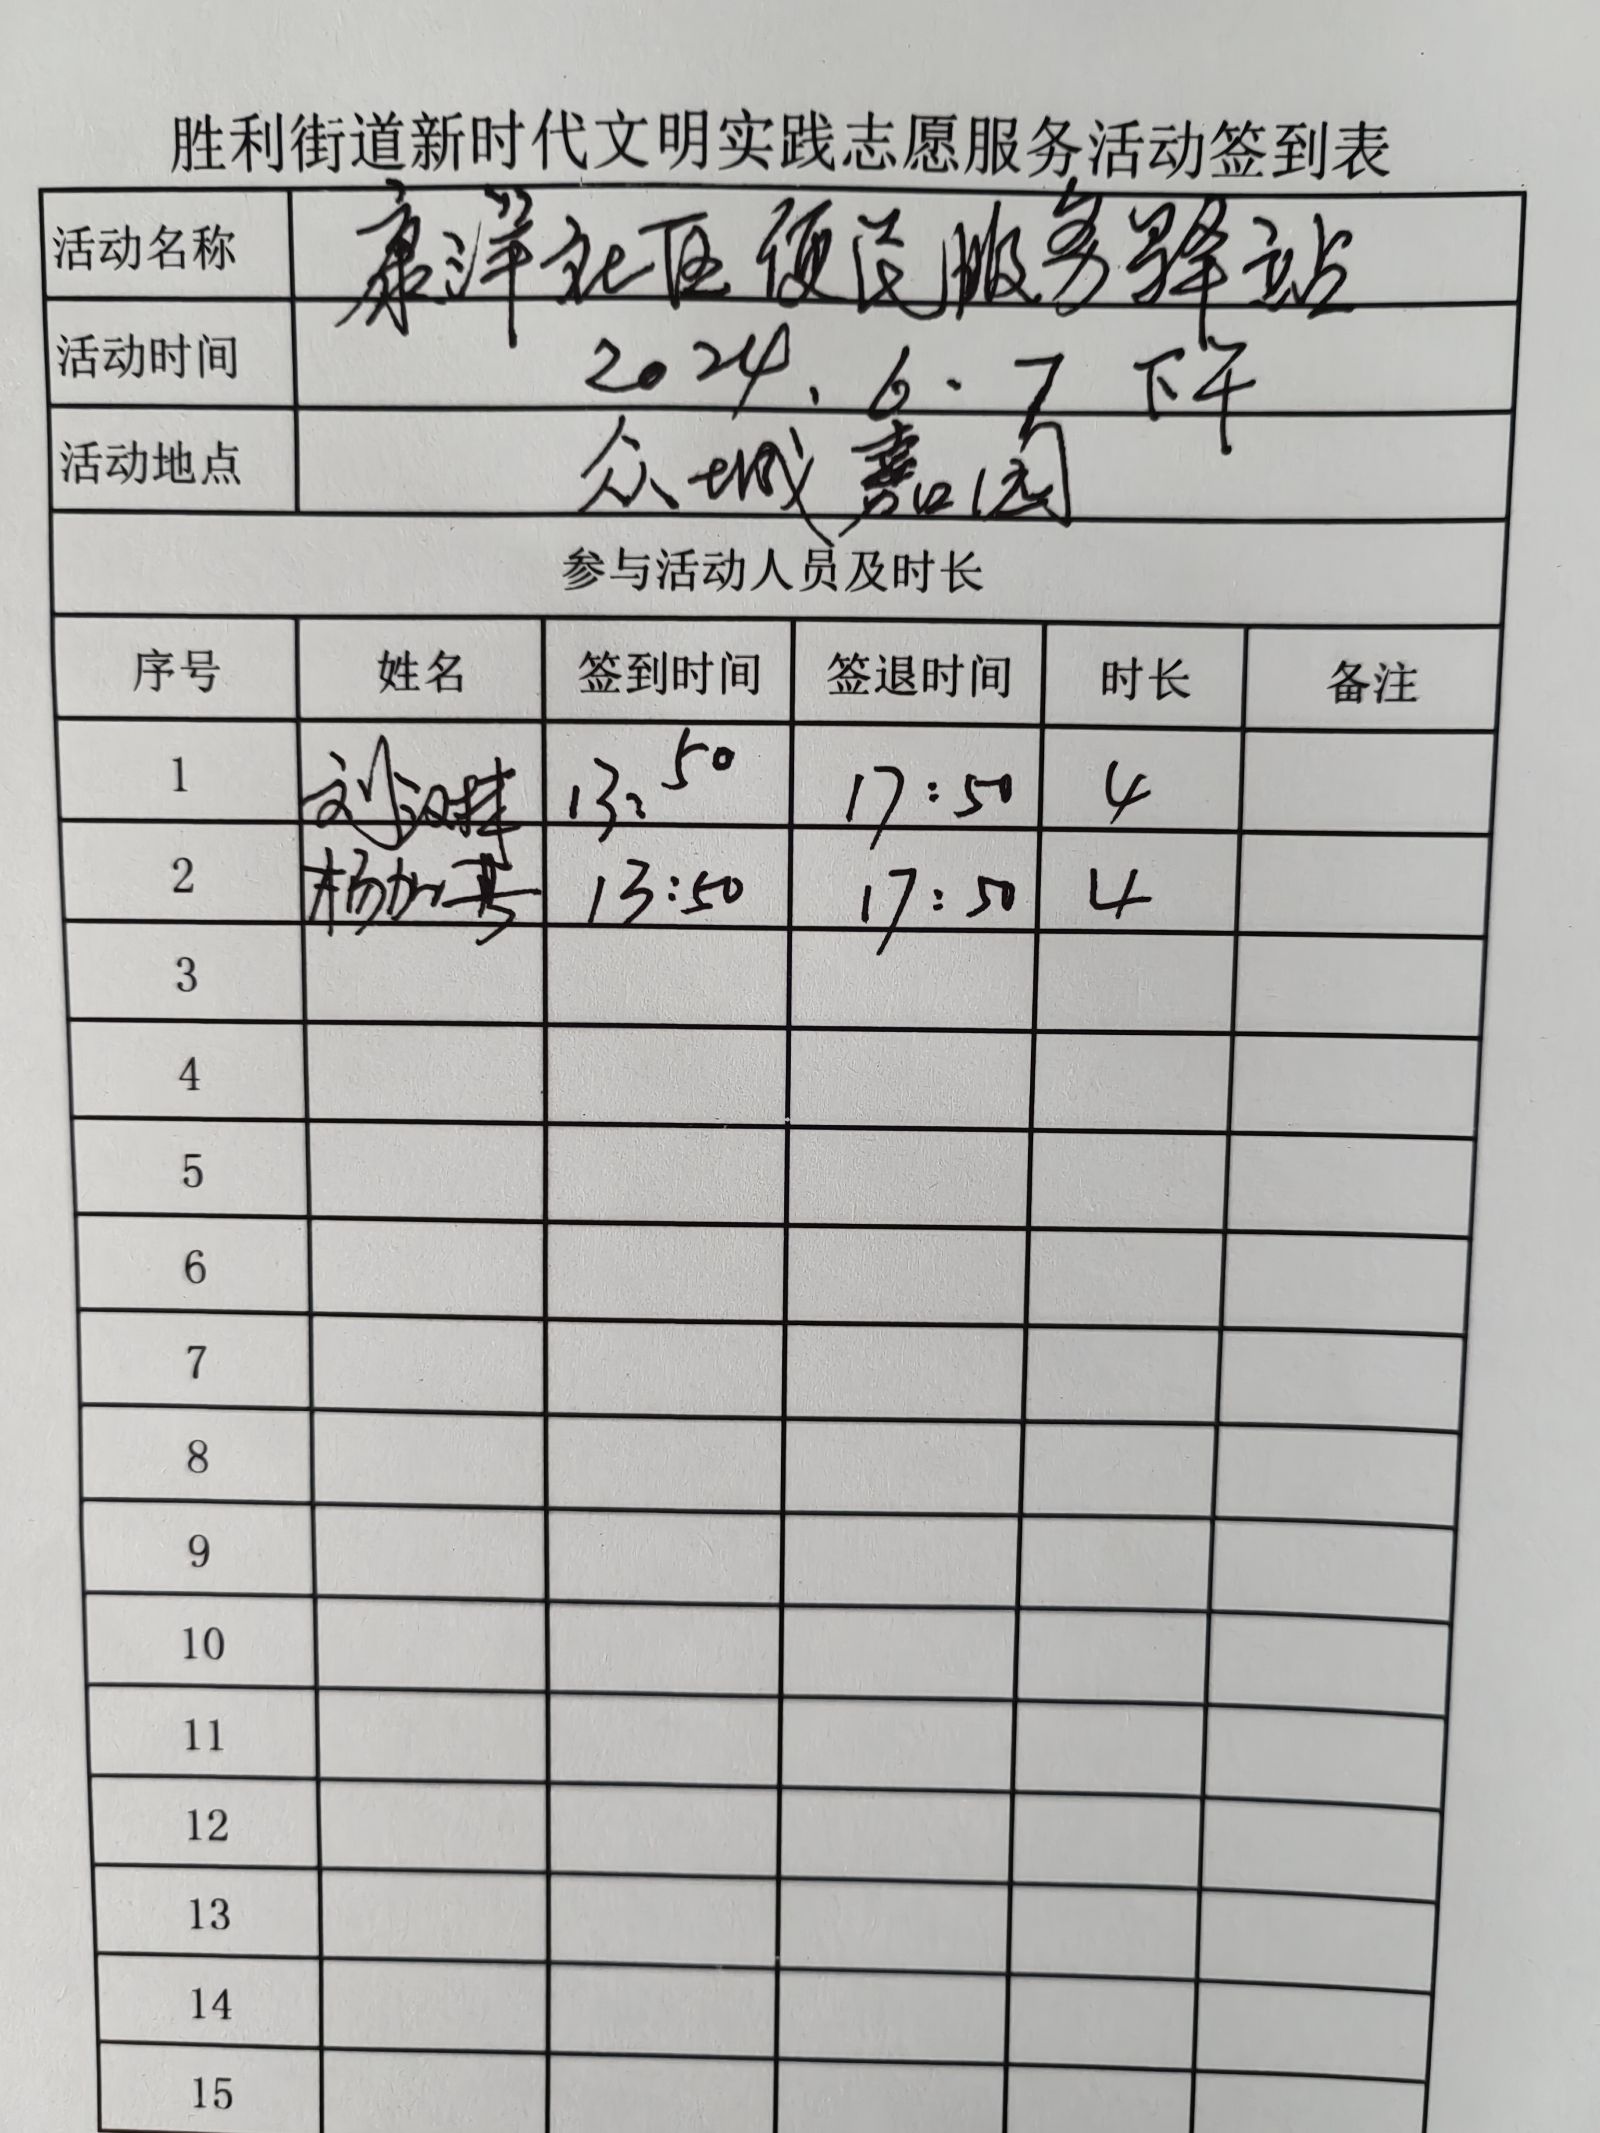 胜利街道新时代文明实践志愿服务活动签到表
活动名称 康洋社区便民服务驿站
活动时间 2024.6.7 下午
活动地点 众城嘉园
参与活动人员及时长
序号 姓名 签到时间 签退时间 时长 备注
1 刘汉 13:50 17:50 4
2 杨加英 13:50 17:50 4
3
4
5
6
7
8
9
10
11
12
13
14
15